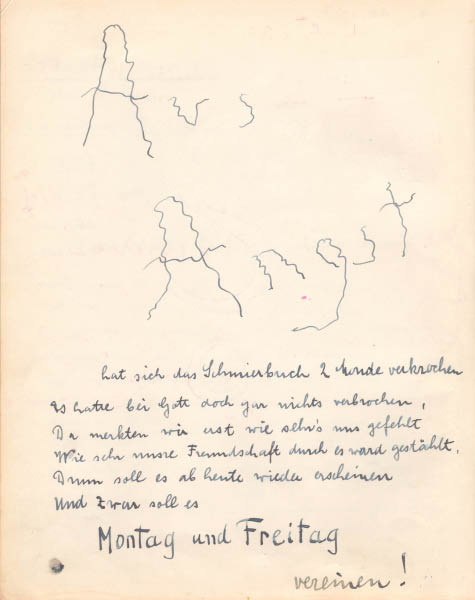 Aus
Angst
hat sich das Schmierbuch 2 Monde verkrochen
Es hatte bei Gott doch gar nichts verbrochen,
Da merkten wir erst wie sehr's uns gefehlt
Wie sehr unsre Freundschaft durch es ward gestählt,
Drum soll es ab heute wieder erscheinen
Und zwar soll es
Montag und Freitag
vereinen!